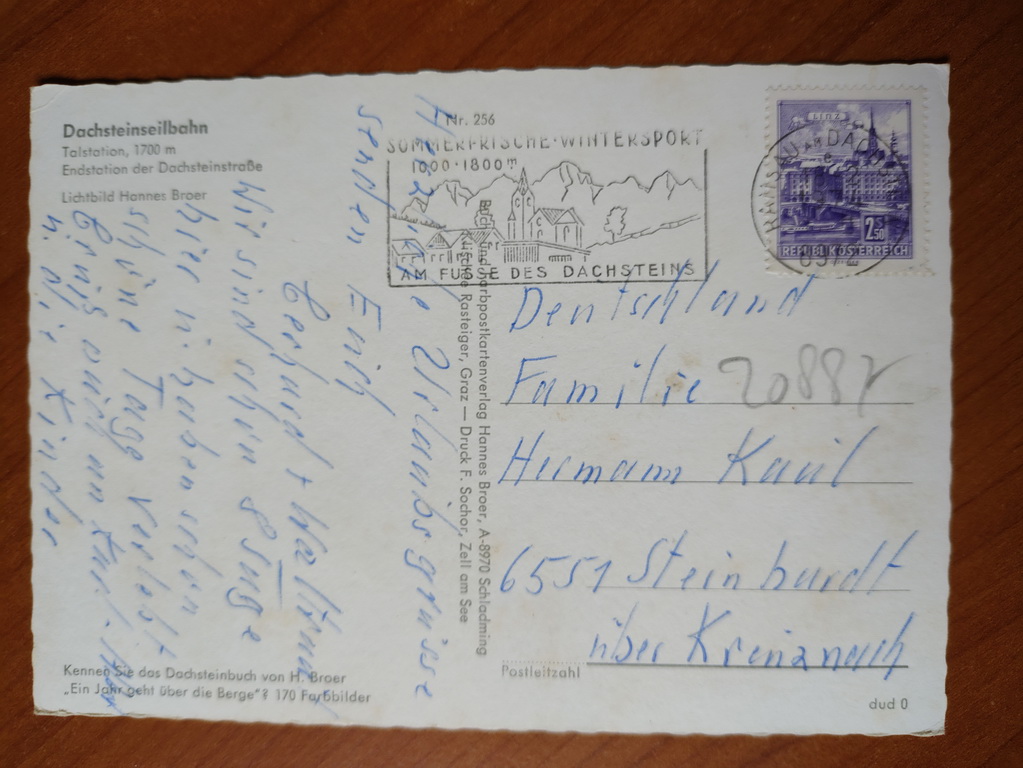 Dachsteinseilbahn
Talstation, 1700 m
Endstation der Dachsteinstraße
Lichtbild Hannes Broer
Nr. 256
SOMMERFRISCHE · WINTERSPORT
1000 - 1800 m
AM FUSSE DES DACHSTEINS
LINZ
2.50
REPUBLIK ÖSTERREICH
RAMSAU AM DACH
Herzliche Urlaubsgrüsse
senden Erich
Gerhard + Waltraud
Wir sind schon 8 Tage
hier u. haben schon
schöne Tage verlebt
Gruß auch an Karl
u. die Kinder
Buch- und Farbpostkartenverlag Hannes Broer, A-8970 Schladming
Rasteiger, Graz — Druck F. Sochor, Zell am See
Deutschland
Familie
20887
Hermann Kaul
6551 Steinhardt
über Kreuznach
Postleitzahl
Kennen Sie das Dachsteinbuch von H. Broer
„Ein Jahr geht über die Berge"? 170 Farbbilder
dud 0